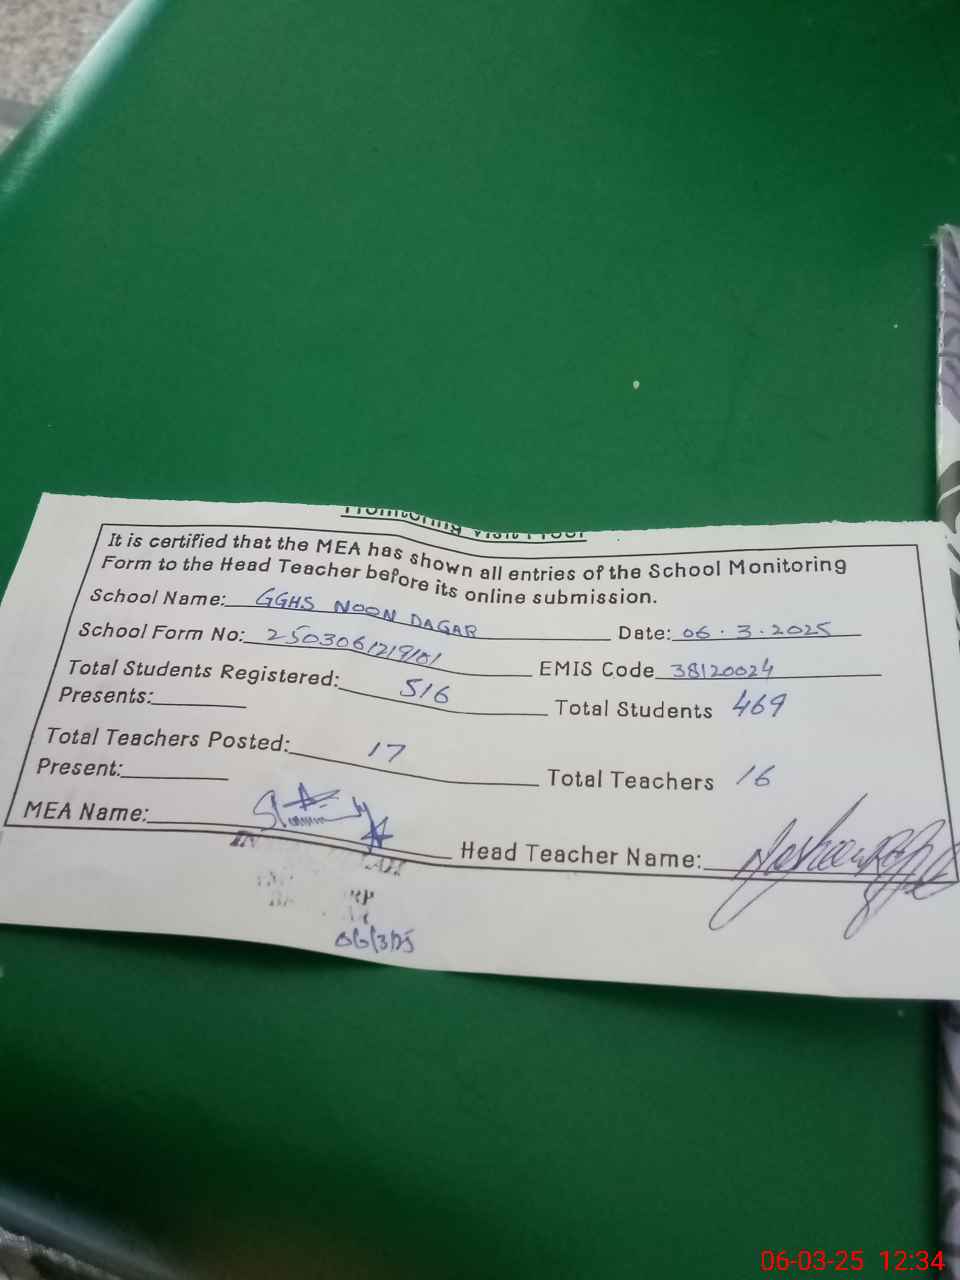 Monitoring Visit Proof
It is certified that the MEA has shown all entries of the School Monitoring
Form to the Head Teacher before its online submission.
School Name: GGHS NOON DAGAR Date: 06.3.2025
School Form No: EMIS Code 38120024
Total Students Registered: 516 Total Students 469
Presents:
Total Teachers Posted: 17 Total Teachers 16
Present:
MEA Name: Head Teacher Name:
06/3/25
06-03-25 12:34